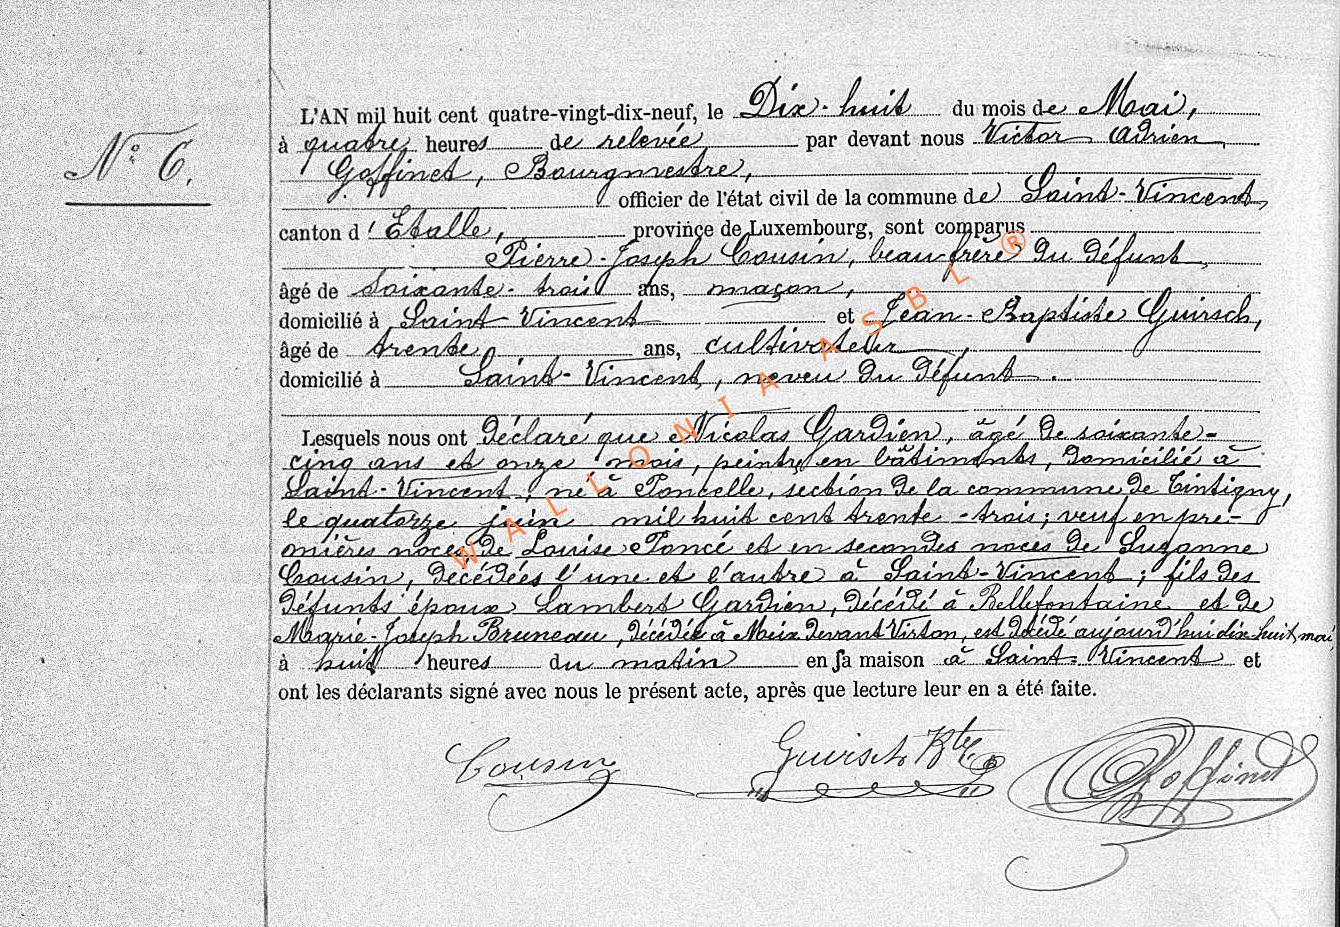 N° 6.
L'AN mil huit cent quatre-vingt-dix-neuf, le Dix-huit du mois de Mai,
à quatre heures de relevée par devant nous Victor Adrien
Goffinet, Bourgmestre,
officier de l'état civil de la commune de Saint-Vincent,
canton d'Etalle, province de Luxembourg, sont comparus
Pierre-Joseph Cousin, beau-frère du défunt,
âgé de soixante-trois ans, maçon,
domicilié à Saint-Vincent et Jean-Baptiste Guirsch,
âgé de trente ans, cultivateur,
domicilié à Saint-Vincent, neveu du défunt.
Lesquels nous ont déclaré que Nicolas Gardien, âgé de soixante-
cinq ans et onze mois, peintre en bâtiments, domicilié à
Saint-Vincent, né à Poncelle, section de la commune de Tintigny,
le quatorze juin mil huit cent trente-trois; veuf en pre-
mières noces de Louise Poncé et en secondes noces de Suzanne
Cousin, décédées l'une et l'autre à Saint-Vincent; fils des
défunts époux Lambert Gardien, décédé à Bellefontaine et de
Marie-Joseph Bruneau, décédée à Meix devant Virton, est décédé aujourd'hui dix-huit mai,
à huit heures du matin en sa maison à Saint-Vincent et
ont les déclarants signé avec nous le présent acte, après que lecture leur en a été faite.
Cousin Guirsch Bte Goffinet
WALLONIA ASBL ®